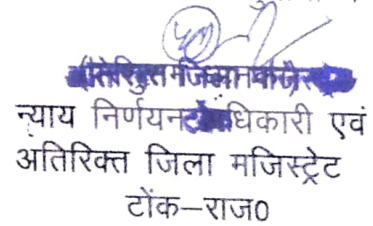 न्याय निर्णयन अधिकारी एवं
अतिरिक्त जिला मजिस्ट्रेट
टोंक–राज0